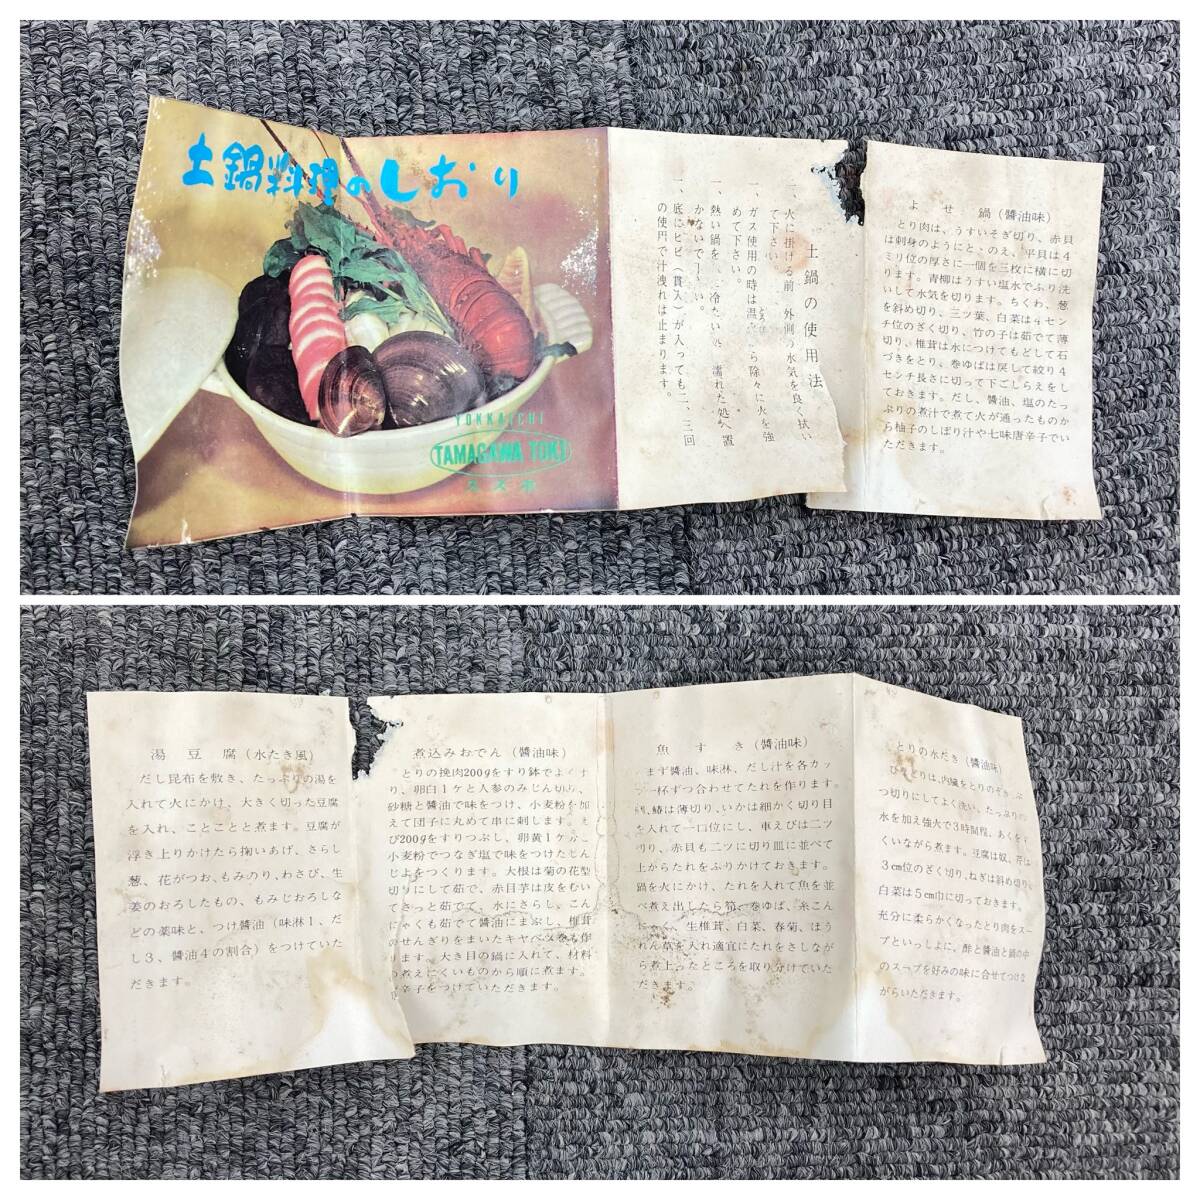 土鍋料理のしおり
YOKKAICHI
TAMAGAWA TOKI
土鍋の使用法
一、火に掛ける前 外側の水気を良く拭い
て下さい
一、ガス使用の時は温火から除々に火を強
めて下さい。
一、熱い鍋を 冷たい処 濡れた処へ置
かないで下さい。
一、底にヒビ(貫入)が入っても二、三回
の使円で汁洩れは止まります。
よせ鍋(醬油味)
とり肉は、うすいそぎ切り、赤貝
は刺身のようにとゝのえ、平貝は4
ミリ位の厚さに一個を三枚に横に切
ります。青柳はうすい塩水でふり洗
いして水気を切ります。ちくわ、葱
を斜め切り、三ツ葉、白菜は4セン
チ位のざく切り、竹の子は茹でて薄
切り、椎茸は水につけてもどして石
づきをとり、巻ゆばは戻して絞り4
センチ長さに切って下ごしらえをし
ておきます。だし、醬油、塩のたっ
ぷりの煮汁で煮て火が通ったものか
ら柚子のしぼり汁や七味唐辛子でい
ただきます。
湯豆腐(水たき風)
だし昆布を敷き、たっぷりの湯を
入れて火にかけ、大きく切った豆腐
を入れ、ことことと煮ます。豆腐が
浮き上りかけたら掬いあげ、さらし
葱、花がつお、もみのり、わさび、生
姜のおろしたもの、もみじおろしな
どの薬味と、つけ醬油(味淋1、だ
し3、醬油4の割合)をつけていた
だきます。
煮込みおでん(醬油味)
とりの挽肉200gをすり鉢でよくす
り、卵白1ケと人参のみじん切り、
砂糖と醬油で味をつけ、小麦粉を加
えて団子に丸めて串に刺します。え
び200gをすりつぶし、卵黄1ケ分と
小麦粉でつなぎ塩で味をつけたしん
じよをつくります。大根は菊の花型
切りにして茹で、赤目芋は皮をむい
てさっと茹でて、水にさらし、こん
にゃくも茹でて醬油にまぶし、椎茸
のせんぎりをまいたキャベツ巻を作
ります。大き目の鍋に入れて、材料
の煮えにくいものから順に煮ます。
辛子をつけていただきます。
魚すき(醬油味)
まず醬油、味淋、だし汁を各カッ
一杯ずつ合わせてたれを作ります。
鯛、鰆は薄切り、いかは細かく切り目
を入れて一口位にし、車えびは二ツ
切り、赤貝も二ツに切り皿に並べて
上からたれをふりかけておきます。
鍋を火にかけ、たれを入れて魚を並
べ煮え出したら筍、巻ゆば、糸こん
にゃく、生椎茸、白菜、春菊、ほう
れん草を入れ適宜にたれをさしなが
ら煮上ったところを取り分けていた
だきます。
とりの水だき(醬油味)
ひなどりは、内臓をとりのぞき、ぶ
つ切りにしてよく洗い、たっぷりの
水を加え強火で3時間程、あくをす
くいながら煮ます。豆腐は奴、芹は
3cm位のざく切り、ねぎは斜め切り、
白菜は5cm巾に切っておきます。
充分に柔らかくなったとり肉をスー
プといっしよに、酢と醬油と鍋の中
のスープを好みの味に合せてつけな
がらいただきます。